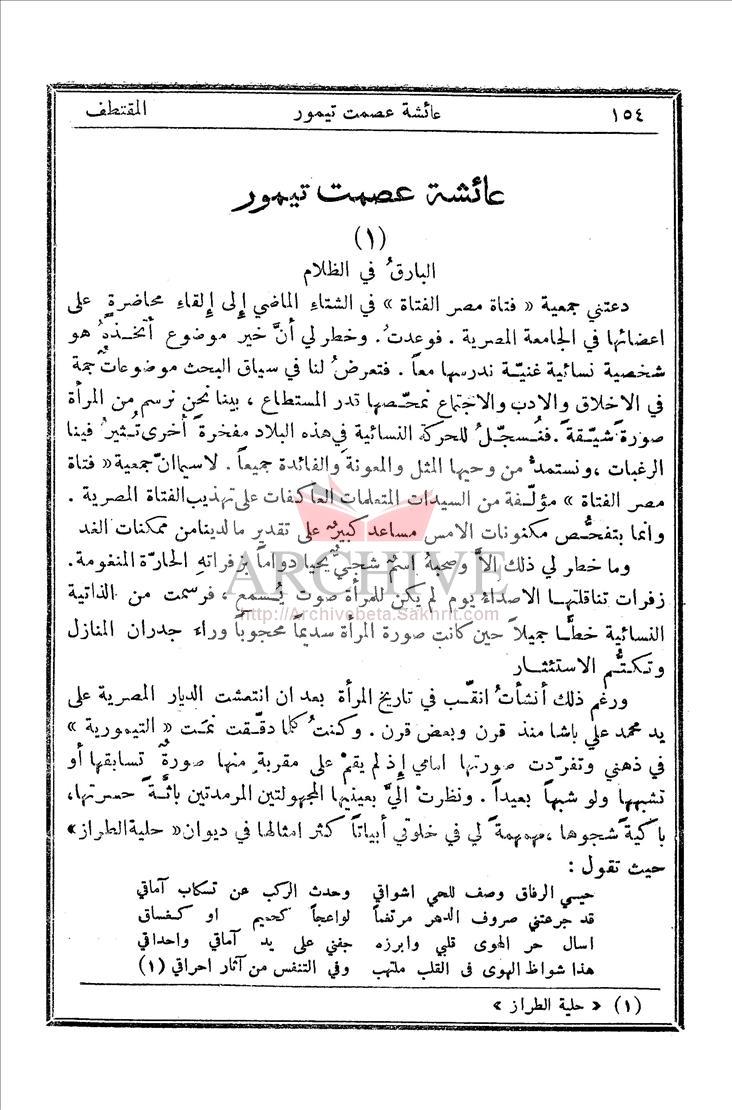 ١٥٤ عائشة عصمت تيمور المقتطف
عائشة عصمت تيمور
(١)
البارقُ في الظلام
دعتني جمعية « فتاة مصر الفتاة » في الشتاءِ الماضي إِلى إِلقاءِ محاضرةٍ على
اعضائها في الجامعة المصرية . فوعدتُ . وخطر لي أنَّ خير موضوع أتخذهُ هو
شخصية نسائية غنيّة ندرسها معاً . فتعرضُ لنا في سياق البحث موضوعاتٌ جمة
في الاخلاق والادب والاجتماع نمحّصها قدر المستطاع ، بينا نحن نرسم من المرأة
صورةً شيّقةً . فنُسجلُ للحركة النسائية في هذه البلاد مفخرةً أُخرى تُثيرُ فينا
الرغبات ، ونستمدُّ من وحيها المثل والمعونة والفائدة جميعاً . لاسيما انّ جمعية « فتاة
مصر الفتاة » مؤلّفة من السيدات المتعلمات العاكفات على تهذيب الفتاة المصرية .
وانما بتفحُّص مكنونات الامس مساعد كبيرٌ على تقدير ما لدينا من ممكنات الغد
وما خطر لي ذلك الاَّ وصحبهُ اسمٌ شجيٌّ يحيا دواماً بزفراتهِ الحارّة المنغومة.
زفرات تناقلتها الاصداءُ يوم لم يكن للمرأة صوت يُسمع ، فرسمت من الذاتية
النسائية خطًّا جميلاً حين كانت صورة المرأة سديماً محجوباً وراءَ جدران المنازل
وتكتُّم الاستئثار
ورغم ذلك أنشأتُ انقّب في تاريخ المرأة بعد ان انتعشت الديار المصرية على
يد محمد علي باشا منذ قرن وبعض قرن . وكنتُ كلما دقّقت نمَت « التيمورية »
في ذهني وتفرّدت صورتها امامي إِذ لم يقمْ على مقربةٍ منها صورةٌ تسابقها أو
تشبهها ولو شبهاً بعيداً . ونظرتْ اليَّ بعينيها المجهولتين المرمدتين باثَّةً حسرتها،
باكيةً شجوها ، مهمهمةً لي في خلوتي أبياتاً كثر امثالها في ديوان « حلية الطراز »
حيث تقول :
حيسي الرفاق وصف للحي اشواقي وحدث الركب عن تسكاب آماقي
قد جرعتني صروف الدهر مرتغماً لواعجاً كحميم او كغساق
اسال حر الهوى قلبي وابرزه جفني على يد آماقي واحداقي
هذا شواظ الهوى في القلب ملتهب وفي التنفس من آثار احراقي (١)
(١) « حلية الطراز »
ARCHIVE
http://Archivebeta.Sakhrit.com